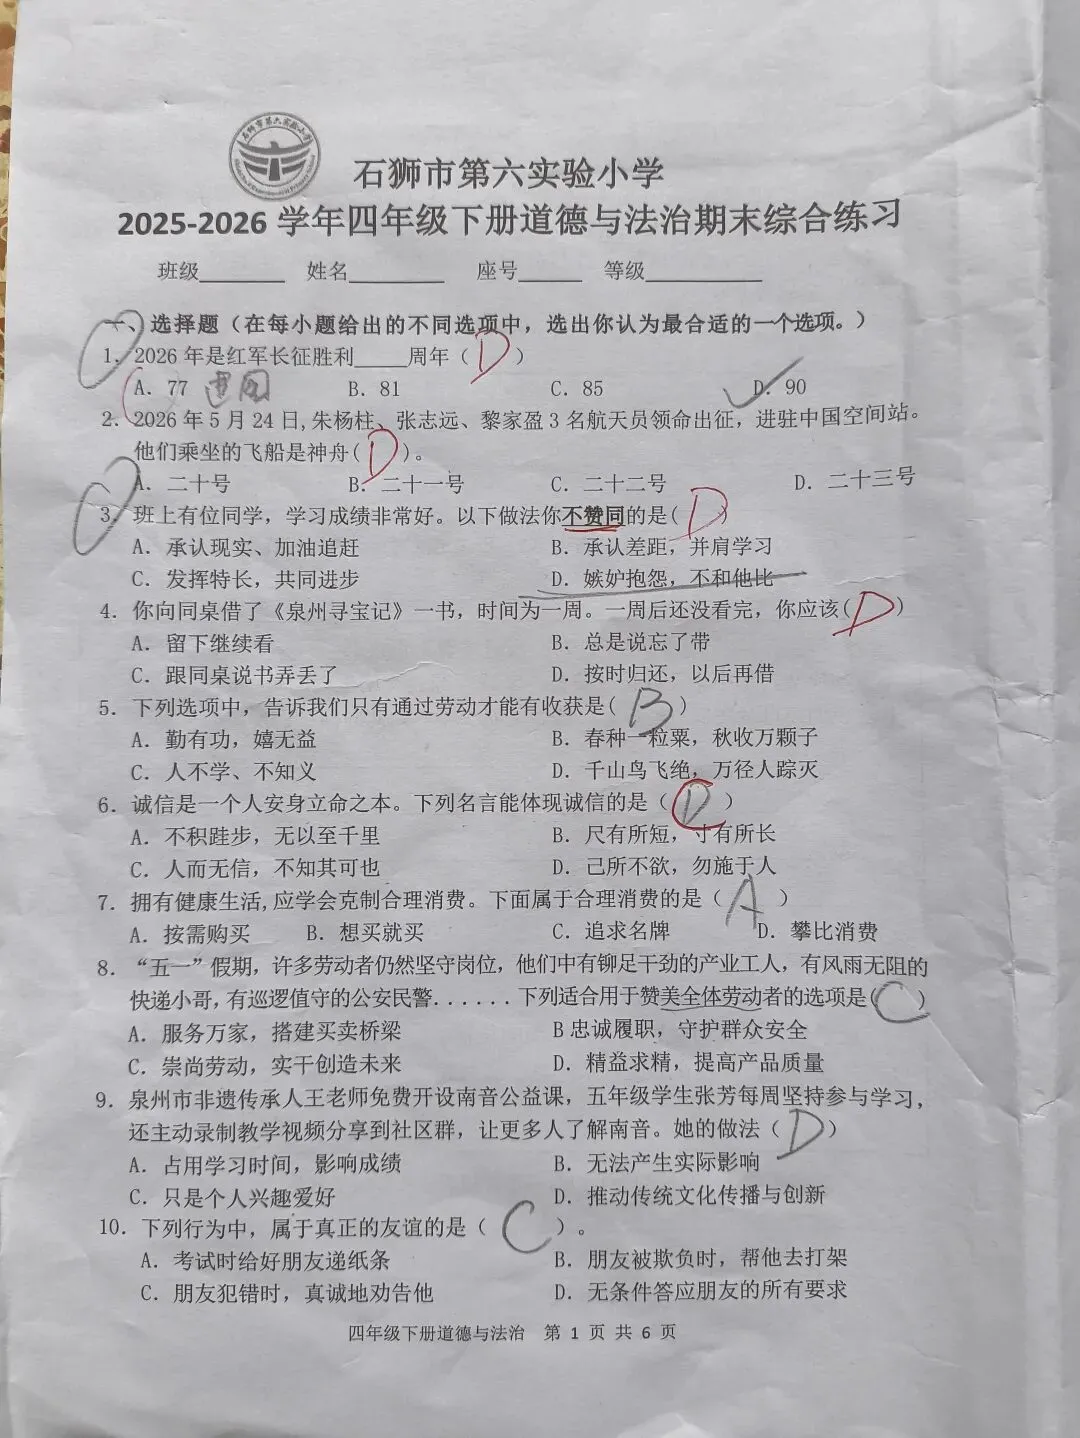 石狮市第六实验小学
石狮市第六实验小学
2025-2026 学年四年级下册道德与法治期末综合练习
班级______ 姓名______ 座号______ 等级______
一、选择题（在每小题给出的不同选项中，选出你认为最合适的一个选项。）
1. 2026 年是红军长征胜利____周年（ D ）
A. 77 B. 81 C. 85 D. 90
2. 2026 年 5 月 24 日,朱杨柱、张志远、黎家盈 3 名航天员领命出征，进驻中国空间站。
他们乘坐的飞船是神舟( D )。
A. 二十号 B. 二十一号 C. 二十二号 D. 二十三号
3. 班上有位同学，学习成绩非常好。以下做法你不赞同的是( D )
A. 承认现实、加油追赶 B. 承认差距，并肩学习
C. 发挥特长，共同进步 D. 嫉妒抱怨，不和他比
4. 你向同桌借了《泉州寻宝记》一书，时间为一周。一周后还没看完，你应该( D )
A. 留下继续看 B. 总是说忘了带
C. 跟同桌说书弄丢了 D. 按时归还，以后再借
5. 下列选项中，告诉我们只有通过劳动才能有收获是( B )
A. 勤有功，嬉无益 B. 春种一粒粟，秋收万颗子
C. 人不学、不知义 D. 千山鸟飞绝，万径人踪灭
6. 诚信是一个人安身立命之本。下列名言能体现诚信的是（ C ）
A. 不积跬步，无以至千里 B. 尺有所短，寸有所长
C. 人而无信，不知其可也 D. 己所不欲，勿施于人
7. 拥有健康生活,应学会克制合理消费。下面属于合理消费的是（ A ）
A. 按需购买 B. 想买就买 C. 追求名牌 D. 攀比消费
8. “五一”假期，许多劳动者仍然坚守岗位，他们中有铆足干劲的产业工人，有风雨无阻的
快递小哥，有巡逻值守的公安民警......下列适合用于赞美全体劳动者的选项是( C )
A. 服务万家，搭建买卖桥梁 B 忠诚履职，守护群众安全
C. 崇尚劳动，实干创造未来 D. 精益求精，提高产品质量
9. 泉州市非遗传承人王老师免费开设南音公益课，五年级学生张芳每周坚持参与学习，
还主动录制教学视频分享到社区群，让更多人了解南音。她的做法（ D ）
A. 占用学习时间，影响成绩 B. 无法产生实际影响
C. 只是个人兴趣爱好 D. 推动传统文化传播与创新
10. 下列行为中，属于真正的友谊的是（ C ）。
A. 考试时给好朋友递纸条 B. 朋友被欺负时，帮他去打架
C. 朋友犯错时，真诚地劝告他 D. 无条件答应朋友的所有要求
四年级下册道德与法治 第 1 页 共 6 页